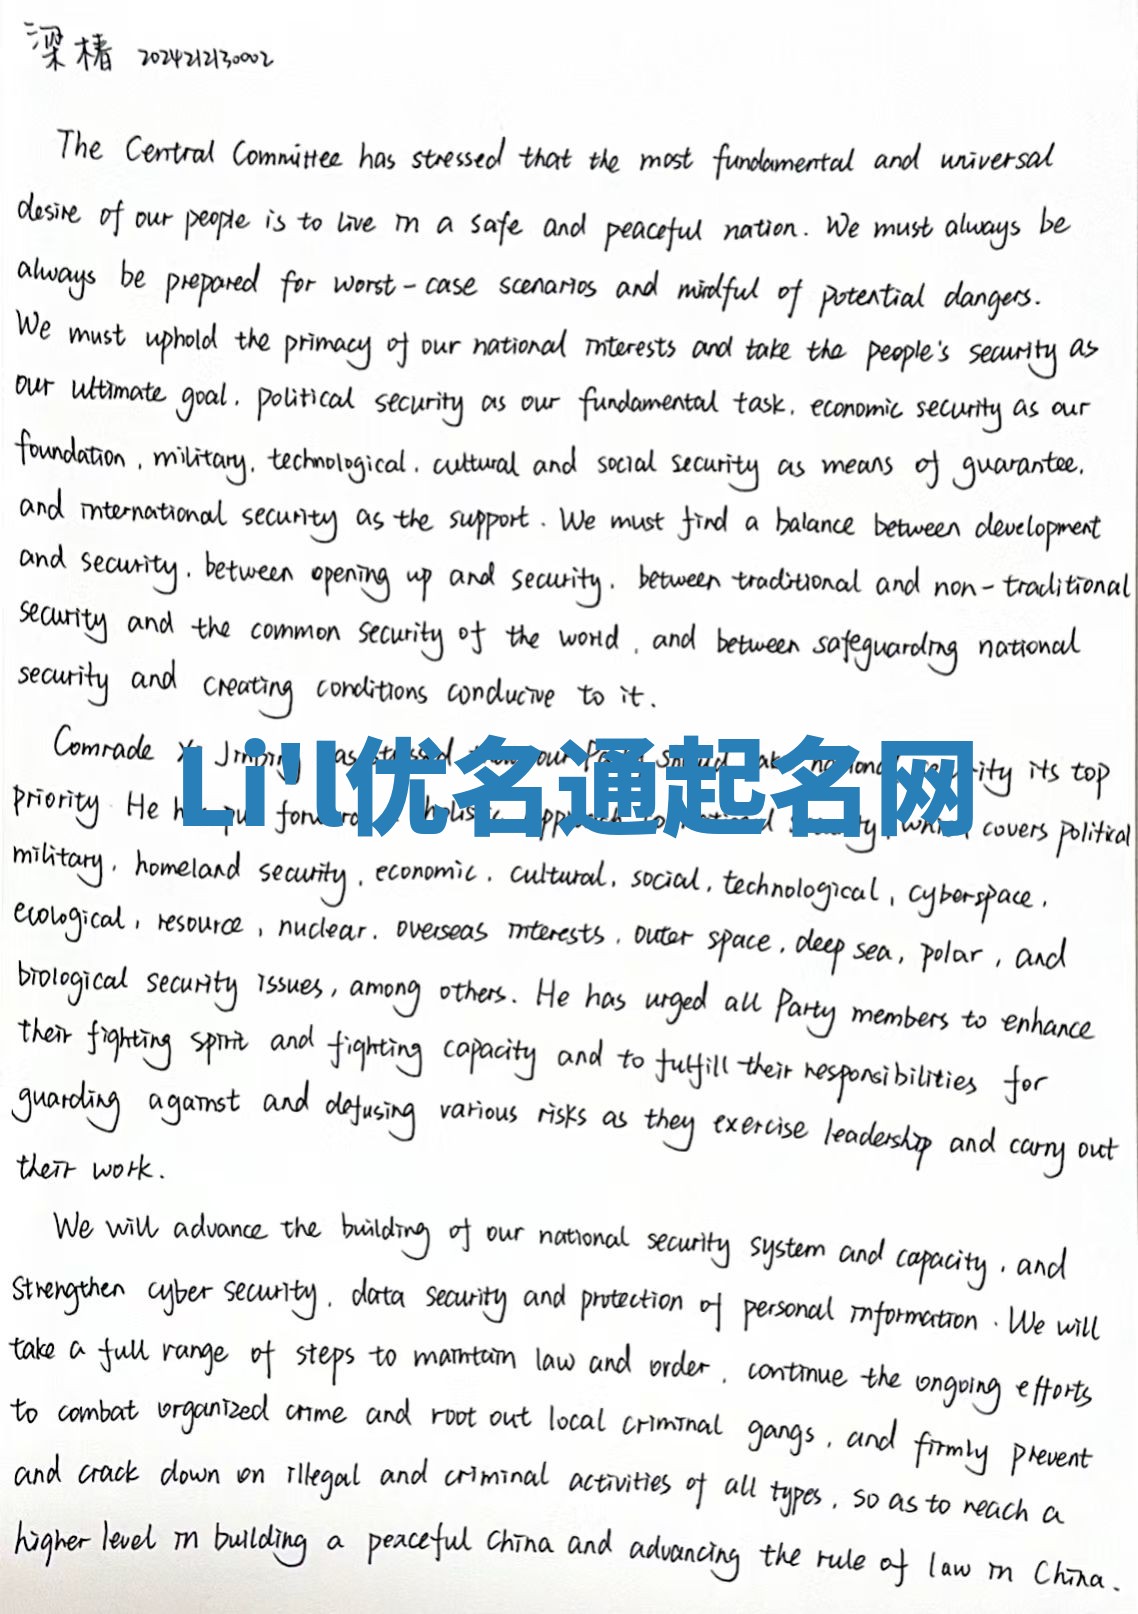 梁椿 2024212130002
The Central Committee has stressed that the most fundamental and universal
desire of our people is to live in a safe and peaceful nation. We must always be
always be prepared for worst-case scenarios and mindful of potential dangers.
We must uphold the primacy of our national interests and take the people's security as
our ultimate goal, political security as our fundamental task, economic security as our
foundation, military, technological, cultural and social security as means of guarantee,
and international security as the support. We must find a balance between development
and security, between opening up and security, between traditional and non-traditional
security and the common security of the world, and between safeguarding national
security and creating conditions conducive to it.
Comrade Jinping our its top
Li'l优名通起名网
priority. He covers political
military, homeland security, economic, cultural, social, technological, cyberspace,
ecological, resource, nuclear, overseas interests, outer space, deep sea, polar, and
biological security issues, among others. He has urged all Party members to enhance
their fighting spirit and fighting capacity and to fulfill their responsibilities for
guarding against and defusing various risks as they exercise leadership and carry out
their work.
We will advance the building of our national security system and capacity, and
strengthen cyber security, data security and protection of personal information. We will
take a full range of steps to maintain law and order, continue the ongoing efforts
to combat organized crime and root out local criminal gangs, and firmly prevent
and crack down on illegal and criminal activities of all types, so as to reach a
higher level in building a peaceful China and advancing the rule of law in China.